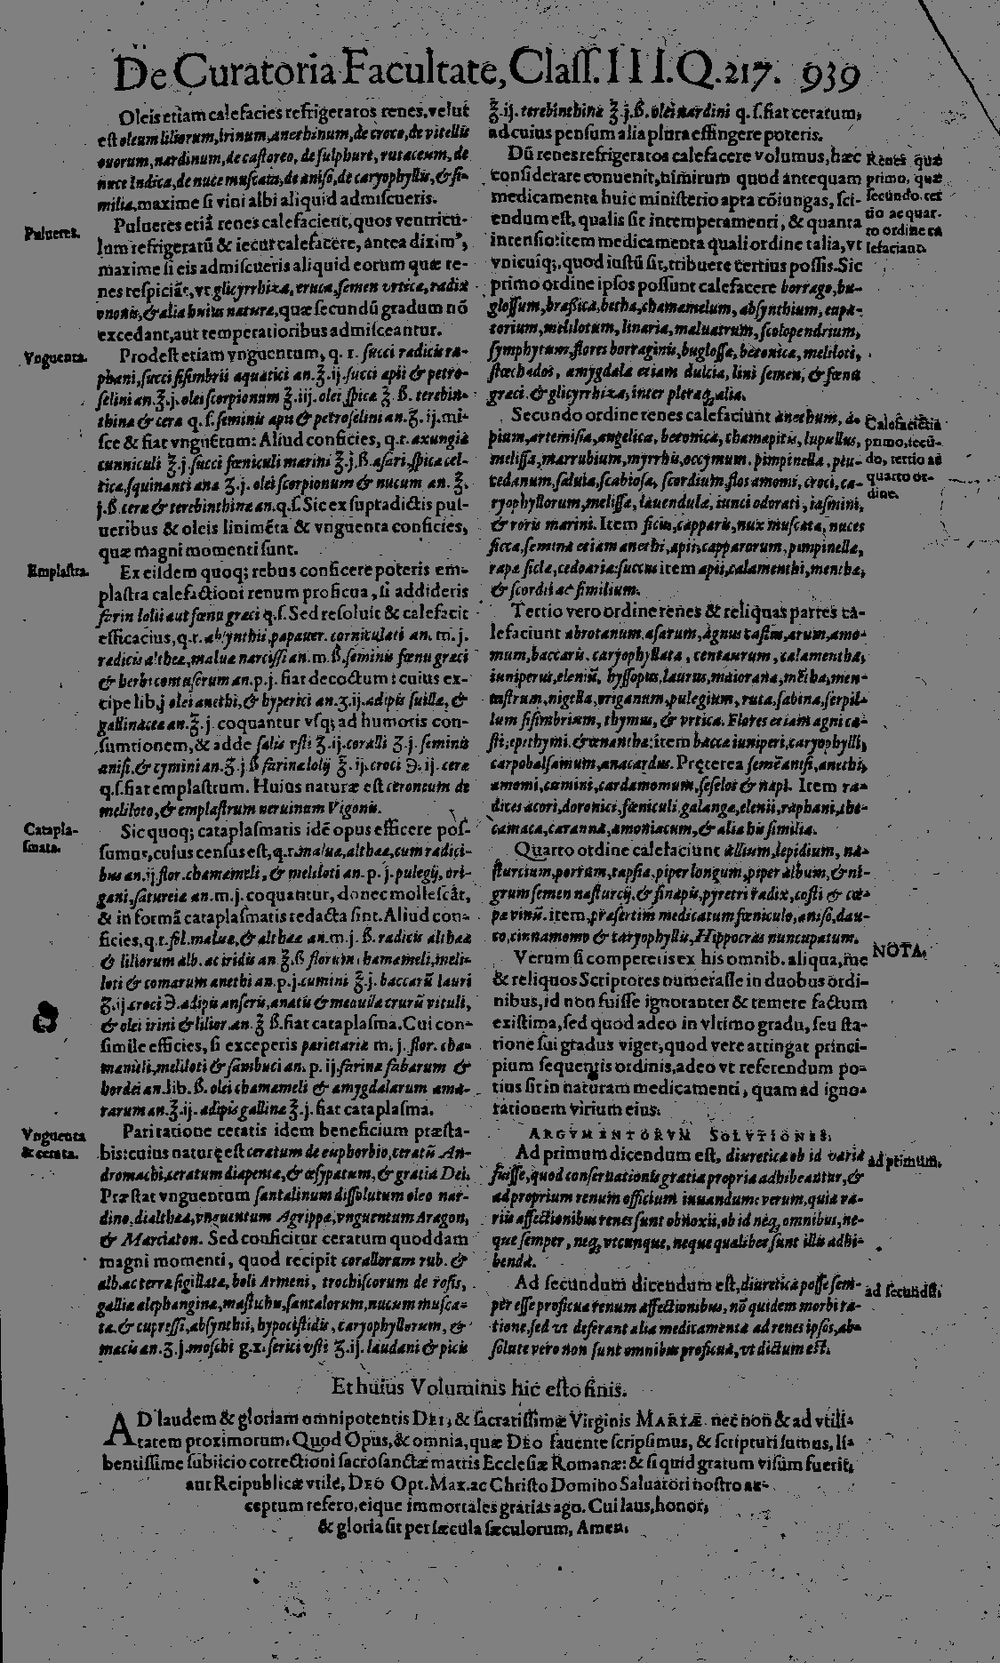 De Curatoria Facultate, Class. III. Q. 217. 939
Oleis etiam calefacies refrigeratos renes, velut
est oleum liliorum, irinum, anethinum, de croco, de vitellis
ouorum, nardinum, de castoreo, de sulphure, rutaceum, de
nuce Indica, de nuce muscata, de aniso, de caryophyllis, & si-
milia, maxime si vini albi aliquid admiscueris.
Pulueres.
Pulueres etiã renes calefacient, quos ventricu-
lum refrigeratũ & iecur calefacere, antea diximꝰ,
maxime si eis admiscueris aliquid eorum quæ re-
nes respiciãt, vt glicyrrhiza, eruca, semen vrtica, radix
ononis, & alia huius natura, quæ secundũ gradum nõ
excedant, aut temperatioribus admisceantur.
Vnguenta.
Prodest etiam vnguentum, q. r. succi radicis ra-
phani, succi sisimbrii aquatici an. ℥. ij. succi apii & petro-
selini an. ℥. j. olei scorpionum ℥. iij. olei spica ℥. ß. terebin-
thina & cera q. s. seminis apii & petroselini an. ℥. ij. mi-
sce & fiat vnguẽtum: Aliud conficies, q. r. axungia
cunniculi ℥. j. succi fœniculi marini ℥. j. ß. asari, spica cel-
tica, squinanti ana ℥. j. olei scorpionum & nucum an. ℥.
j. ß. cera & terebinthina an. q. s. Sic ex suptadictis pul-
ueribus & oleis linimẽta & vnguenta conficies,
quæ magni momenti sunt.
Emplastra.
Ex eisdem quoq; rebus conficere poteris em-
plastra calefactioni renum proficua, si addideris
farin lolii aut fœnu graci q. s. Sed resoluit & calefacit
efficacius, q. r. absynthii, papauer. corniculati an. m. j.
radicis althea, malua narcissi an. m. ß. seminis fœnu graci
& herb: contuserum an. p. j. fiat decoctum: cuius ex-
cipe lib. j olei anethi, & hyperici an. ℥. ij. adipis suilla, &
gallinacea an. ℥. j. coquantur vsq; ad humoris con-
sumtionem, & adde salis vsti ℥. ij. coralli ℥. j. seminis
anisi, & cymini an. ℥. j. ß farina lolij ℥. ij. croci ℈. ij. cera
q. s. fiat emplastrum. Huius naturæ est ceroneum de
meliloto, & emplastrum neruinum Vigonis.
Catapla-
smata.
Sic quoq; cataplasmatis idẽ opus efficere pos-
sumus, cuius census est, q. r. malua, althea, cum radici-
bus an. ij flor. chamameli, & meliloti an. p. j. pulegij, ori-
gani, satureia an. m. j. coquantur, donec mollescãt,
& in formã cataplasmatis redacta sint. Aliud con-
ficies, q. r. fol. malua, & althea an. m. j. ß. radicis althea
& liliorum alb. ac iridis an. ℥. ß florum chamameli, meli-
loti & comarum anethi an. p. j. cumini ℥. j. baccarũ lauri
℥. ij croci ℈. adipis anseris, anatis & meduila crurũ vituli,
& olei irini & lilior. an. ℥ ß. fiat cataplasma. Cui con-
simile efficies, si exceperis parietaria m. j. flor. cha-
mameli, meliloti & sambuci an. p. ij. farina fabarum &
hordei an. lib. ß. olei chamameli & amygdalarum ama-
rarum an. ℥. ij. adipis gallina ℥. j. fiat cataplasma.
Vnguenta
& cerata.
Pari ratione ceratis idem beneficium præsta-
bis: cuius naturę est ceratum de euphorbio, ceratũ An-
dromachi, ceratum diapenta, & œsypatum, & gratia Dei.
Præstat vnguentum santalinum dissolutum oleo nar-
dino, dialthea, vnguentum Agrippa, vnguentum Aragon,
& Marciaton. Sed conficitur ceratum quoddam
magni momenti, quod recipit corallorum rub. &
alb. ac terra sigillata, boli Armeni, trochiscorum de rosis,
gallia alephangina, mastichis, santalorum, nucum musca-
ta, & cupressi, absynthii, hypocistidis, caryophyllorum, &
macis an. ℥. j. moschi g. x. serici vsti ℥. ij. laudani & picis
℥. ij. terebinthina ℥. j. ß. olei nardini q. s. fiat ceratum,
ad cuius pensum alia plura effingere poteris.
Dũ renes refrigeratos calefacere volumus, hæc
considerare conuenit, nimirum quod antequam
medicamenta huic ministerio apta cõiungas, sci-
endum est, qualis sit intemperamenti, & quanta
intensio: item medicamenta quali ordine talia, vt
vnicuiq;, quod iustũ sit, tribuere tertius possis. Sic
primo ordine ipsos possunt calefacere borrago, bu-
glossum, brassica, betha, chamamelum, absynthium, eupa-
torium, melilotum, linaria, maluatrum, scolopendrium,
symphytum, flores borraginis, buglossa, betonica, meliloti,
stœchados, amygdala etiam dulcia, lini semen, & fœnu
graci. & glicyrrhiza, inter pleraq; alia.
Renes quæ
primo, quæ
secundo, ter
tio ac quar-
to ordine ca
lefaciant.
Secundo ordine renes calefaciunt anethum, a-
pium, artemisia, angelica, betonica, chamapitis, lupullus,
melissa, marrubium, myrrhis, occymum, pimpinella, peu-
cedanum, saluia, scabiosa, scordium, flos amomi, croci, ca-
ryophyllorum, melissa, lauendula, iunci odorati, iasmini,
& roris marini. Item ficus, capparis, nux muscata, nuces
sicca, semina etiam anethi, apii, capparorum, pimpinella,
rapa sicla, cedoaria: succus item apii, calamenthi, mentha,
& scordii ac similium.
Calefaciẽtia
primo, secũ-
do, tertio ac
quarto or-
dine.
Tertio vero ordine renes & reliquas partes ca-
lefaciunt abrotanum, asarum, agnus castus, arum, amo-
mum, baccaris, caryophyllata, centaurum, calamentha,
iuniperus, eleniũ, hyssopus, laurus, maiorana, mẽtha, men-
tastrum, nigella, origanum, pulegium, ruta, sabina, serpil-
lum sisimbrium, thymus, & vrtica. Flores etiam agni ca-
sti, epithymi, & œnantha: item bacca iuniperi, caryophylli,
carpobalsamum, anacardus. Pręterea semẽ anisi, anethi,
amomi, cumini, cardamomum, seselos & napi. Item ra-
dices acori, doronici, fœniculi, galanga, elenii, raphani, the-
camaca, caranna, amoniacum, & alia his similia.
Quarto ordine calefaciunt allium, lepidium, na-
sturcium, porrum, tapsia, piper longum, piper album, & ni-
grum semen nasturcij, & sinapis, pyretri radix, costi & cæ-
pa vinũ. item, præsertim medicatum fœniculo, aniso, dau-
co, cinnamomo & caryophyllis, Hippocras nuncupatum.
NOTA.
Verum si compereris ex his omnib. aliqua, me
& reliquos Scriptores numerasse in duobus ordi-
nibus, id non fuisse ignoranter & temere factum
existima, sed quod adeo in vltimo gradu, seu sta-
tione sui gradus viget, quod vere attingat princi-
pium sequentis ordinis, adeo vt referendum po-
tius sit in naturam medicamenti, quam ad igno-
rationem virium eius.
ARGVMENTORVM SOLVTIONES.
Ad primum dicendum est, diuretica ob id varia
fuisse, quod conseruationis gratia propria adhibeantur, &
ad proprium renum officium iuuandum: verum, quia va-
riis affectionibus renes sunt obnoxii, ob id neq; omnibus, ne-
que semper, neq; vtcunque, neque qualiber sunt illis adhi-
benda.
ad primum.
Ad secundum dicendum est, diuretica posse sem-
per esse proficua renum affectionibus, nõ quidem morbi ra-
tione, sed vt deferant alia medicamenta ad renes ipsos, ab-
solute vero non sunt omnibus proficua, vt dictum est.
ad secundũ.
Et huius Voluminis hic esto finis.
AD laudem & gloriam omnipotentis DEI, & sacratissimæ Virginis MARIÆ. nec non & ad vtili-
tatem proximorum. Quod Opus, & omnia, quæ DEO fauente scripsimus, & scripturi sumus, li-
bentissime subiicio correctioni sacrosanctæ matris Ecclesiæ Romanæ: & si quid gratum visum fuerit,
aut Reipublicæ vtile, DEO Opt. Max. ac Christo Domino Saluatori nostro ac-
ceptum refero, eique immortales gratias ago. Cui laus, honor,
& gloria sit per sæcula sæculorum, Amen.